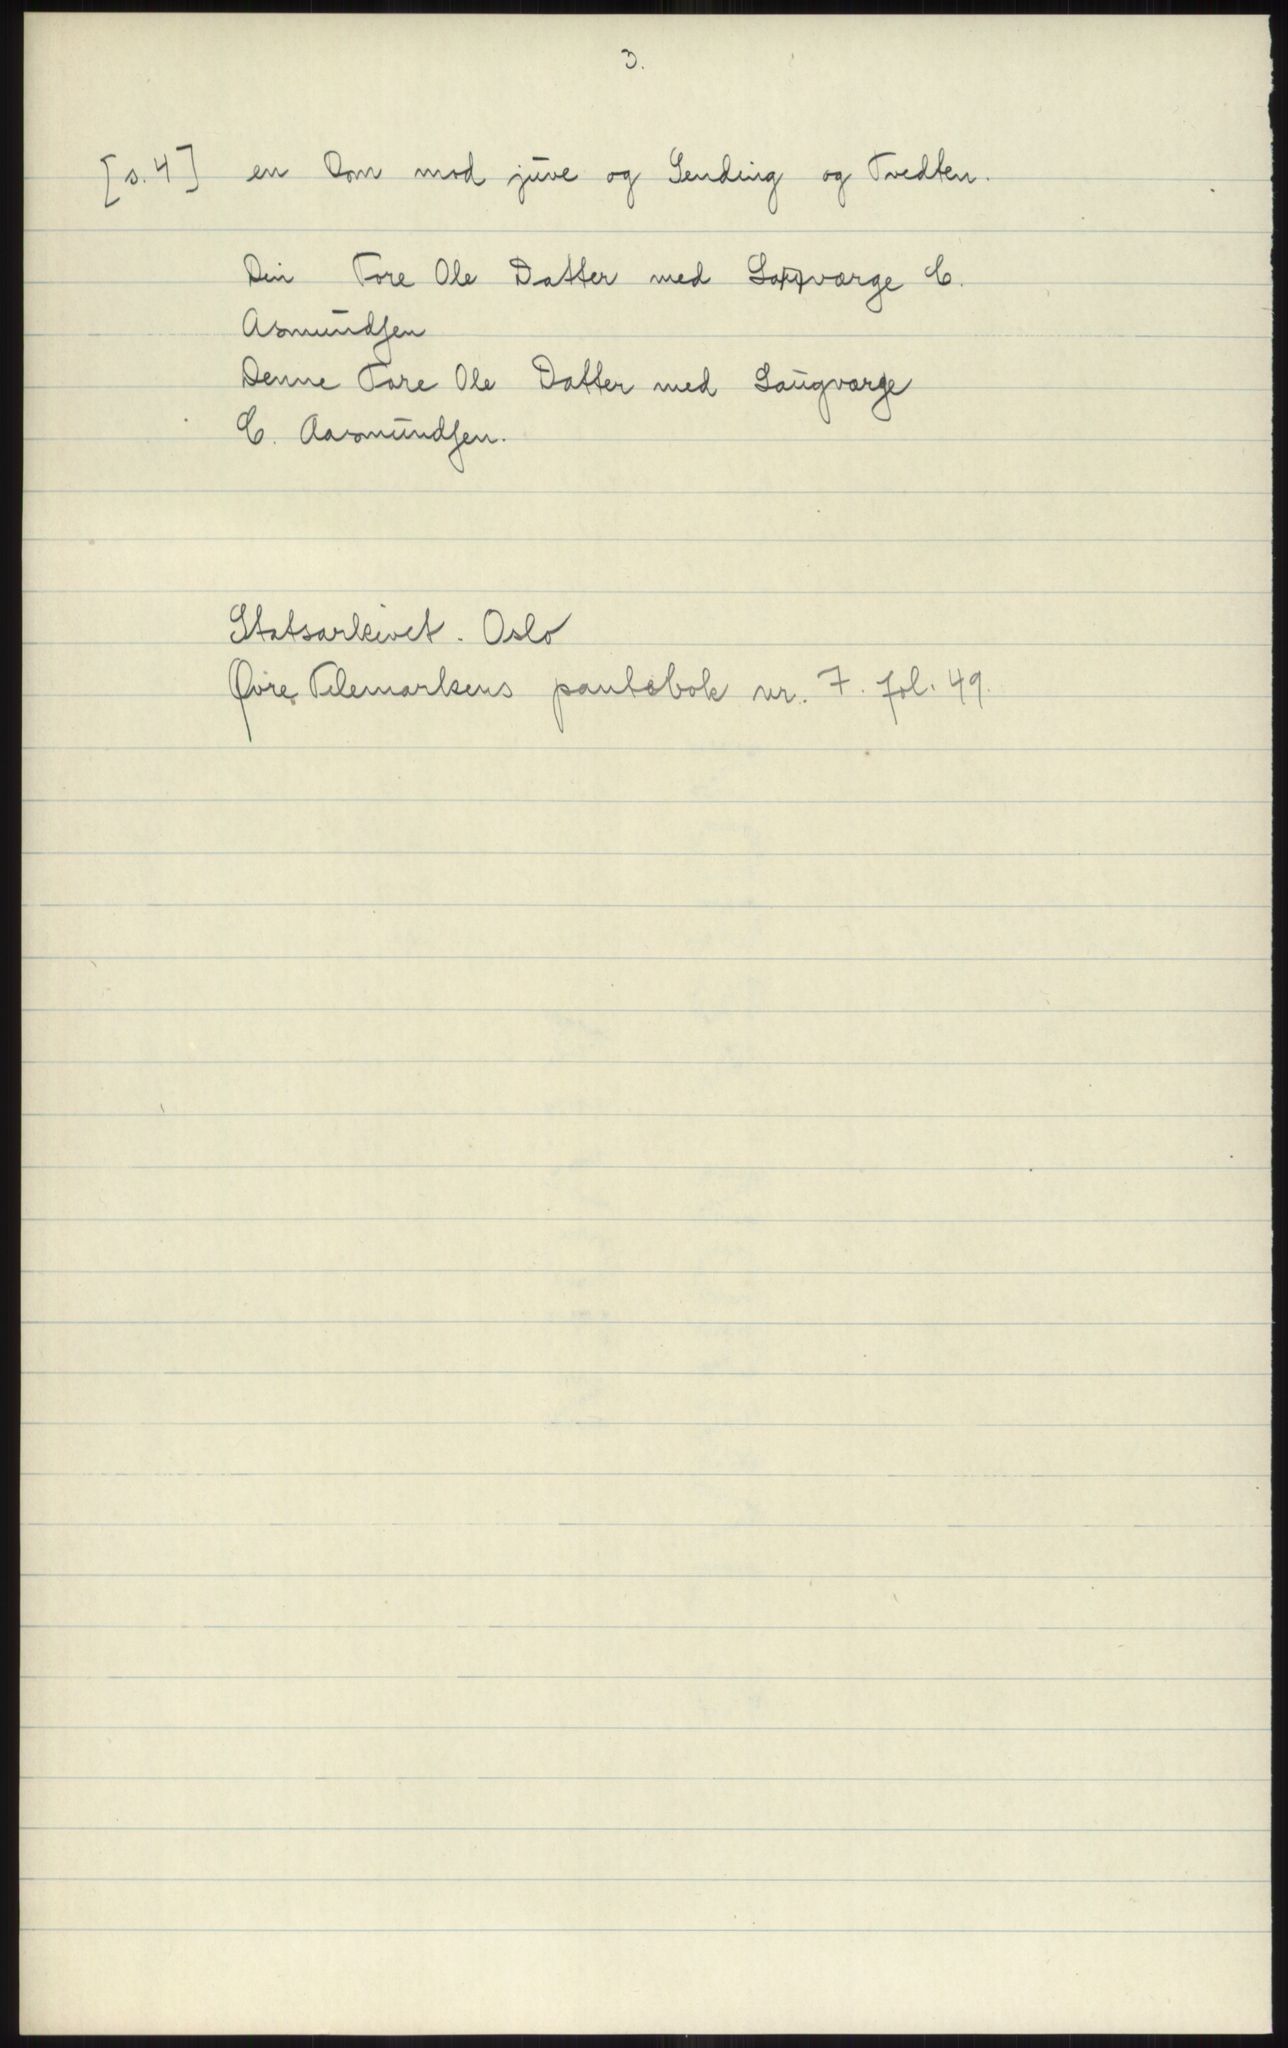 3.
[s. 4] en Dom mod jūve og Sending og Tvedten.
Din Tore Ole Datter medværge C.
Asmūndsen
Denne Tore Ole Datter med Laūgværge
C. Aasmūndsen.
Statsarkivet. Oslo
Øvre Telemarkens pantebok nr. 7. fol. 49.